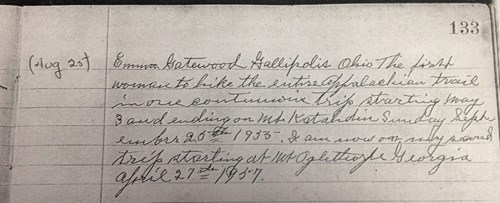 133
(Aug 25) Emma Gatewood Gallipolis Ohio The first
woman to hike the entire Appalachian trail
in one continuous trip starting May
3 and ending on Mt Katahdin Sunday Sept
ember 25th 1955. I am now on my second
trip starting at Mt Oglethorpe Georgia
April 27th 1957.